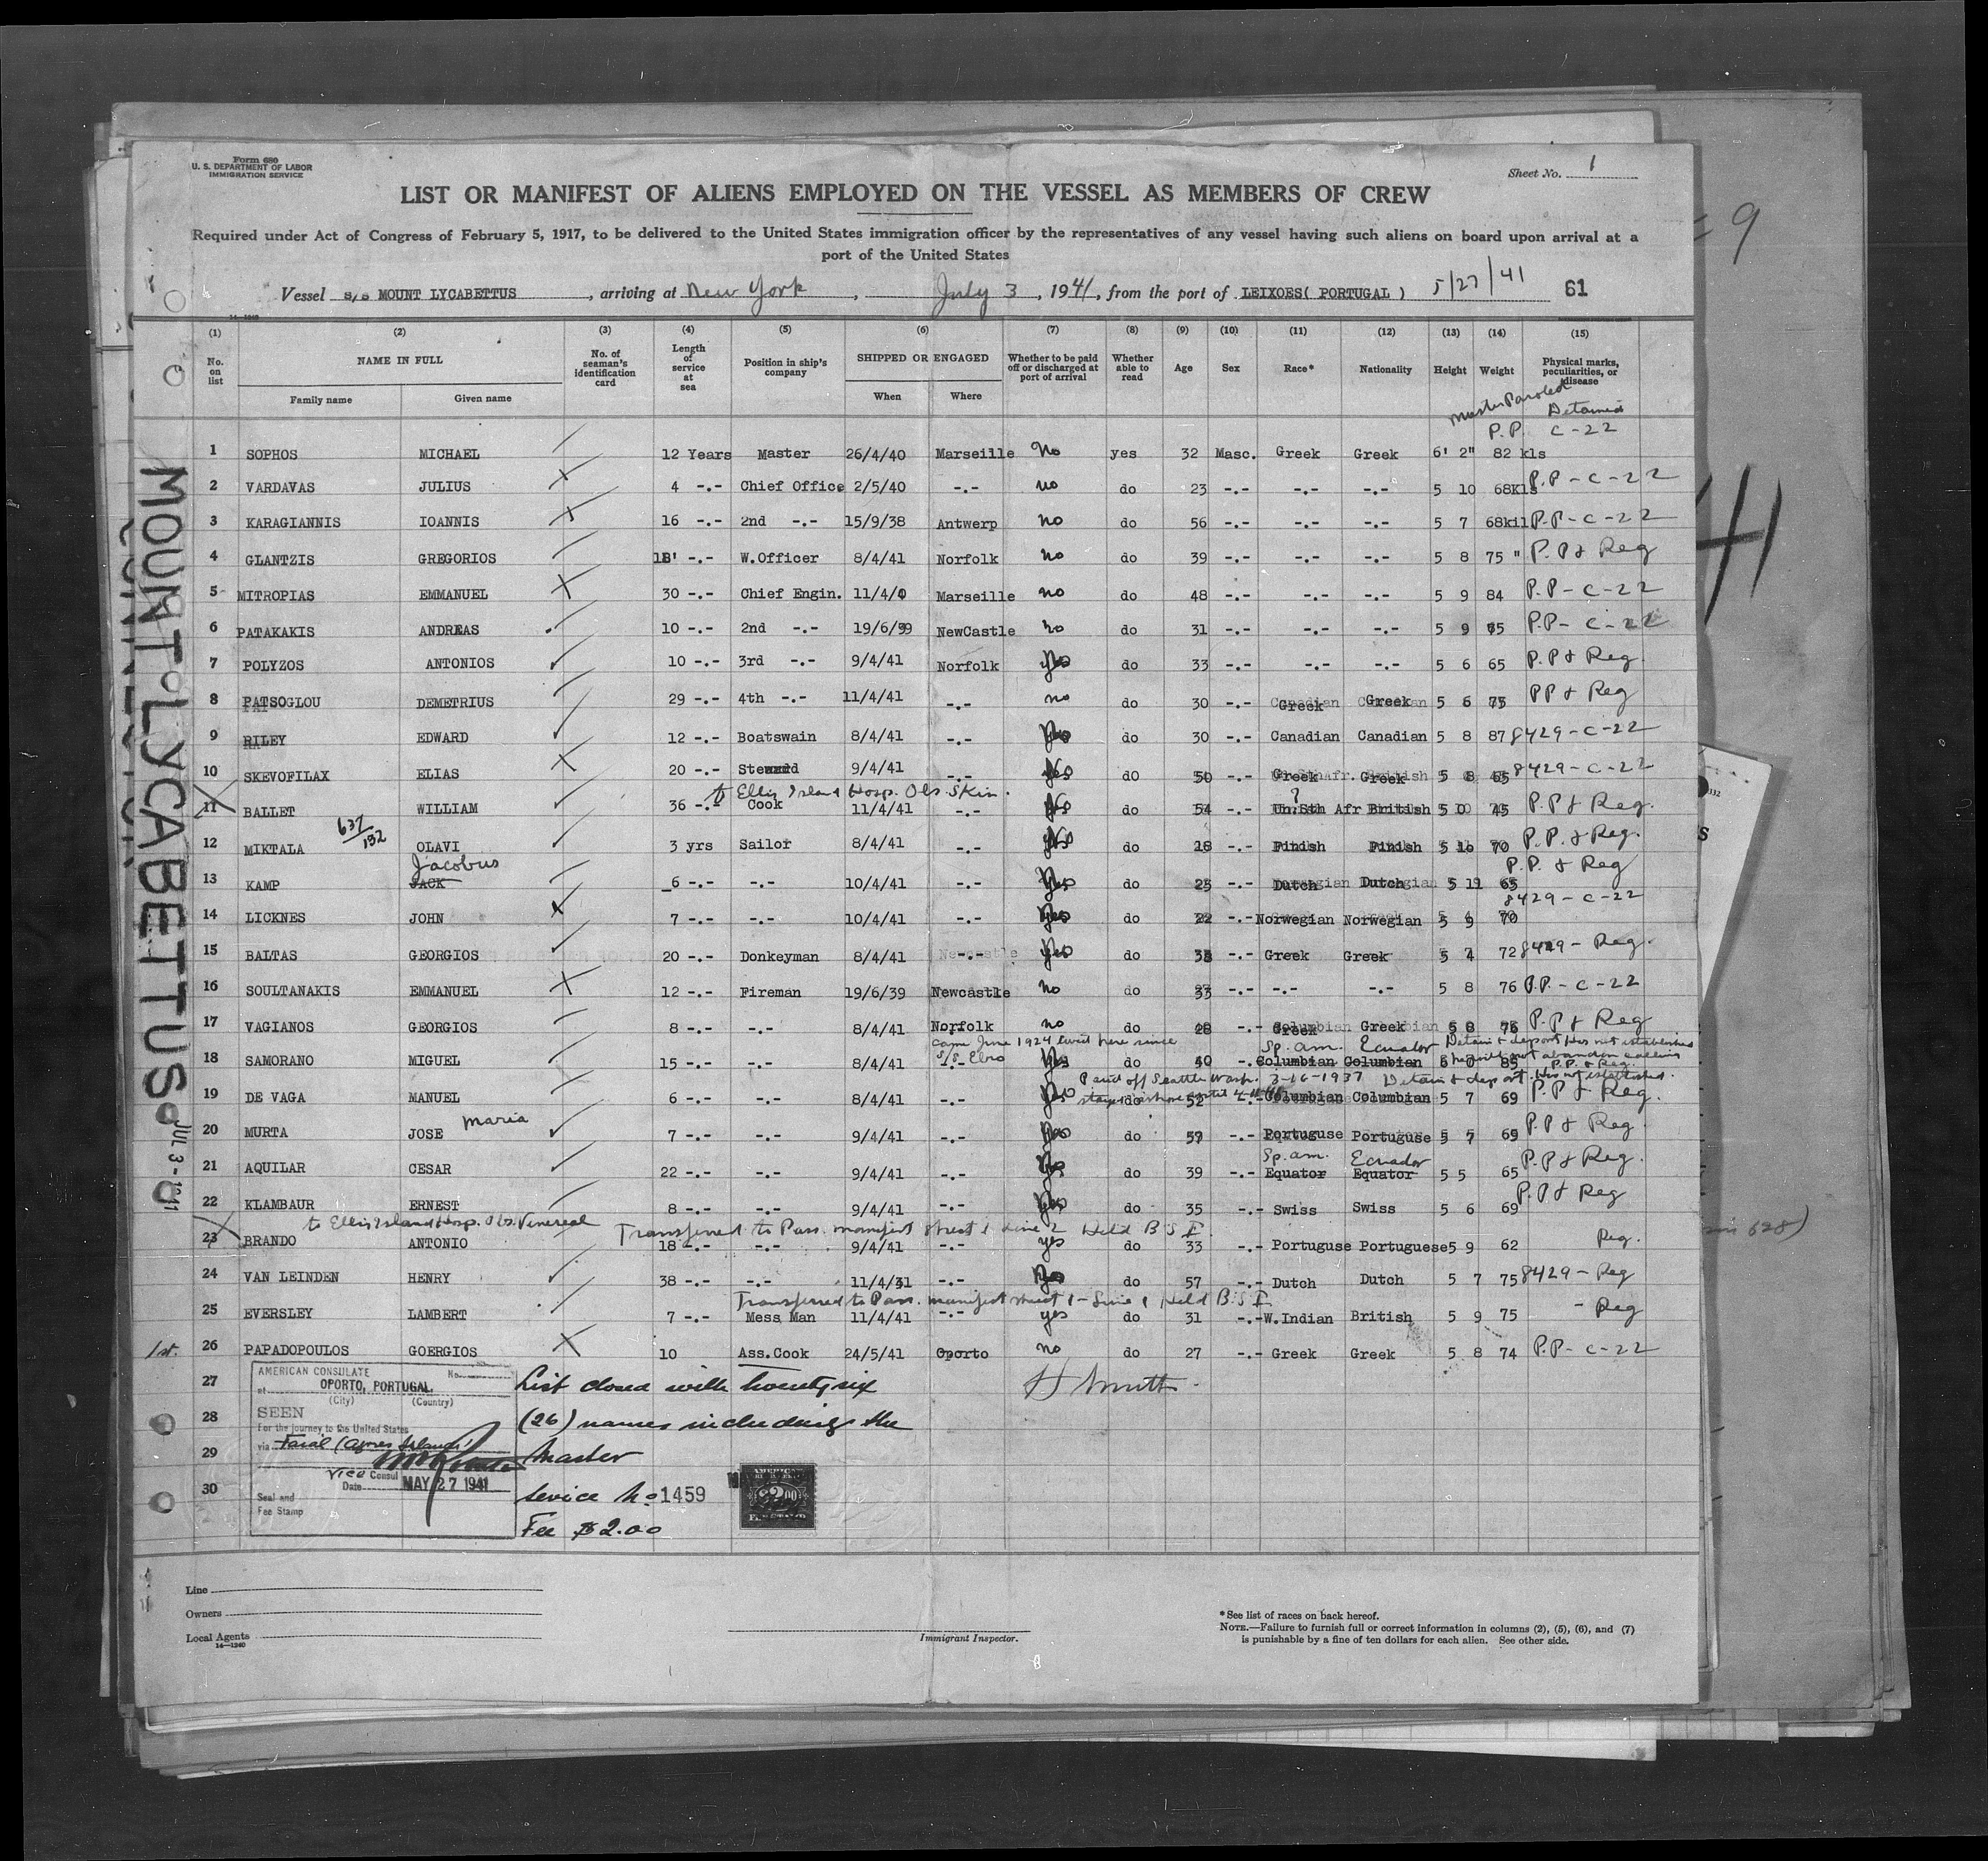 Form 680
U. S. DEPARTMENT OF LABOR
IMMIGRATION SERVICE
Sheet No. 1
LIST OR MANIFEST OF ALIENS EMPLOYED ON THE VESSEL AS MEMBERS OF CREW
Required under Act of Congress of February 5, 1917, to be delivered to the United States immigration officer by the representatives of any vessel having such aliens on board upon arrival at a
port of the United States
Vessel s/s MOUNT LYCABETTUS, arriving at New York, July 3, 1941, from the port of LEIXOES( PORTUGAL ) 5/27/41 61
14-1240
(1) (2) (3) (4) (5) (6) (7) (8) (9) (10) (11) (12) (13) (14) (15)
No. on list NAME IN FULL No. of seaman's identification card Length of service at sea Position in ship's company SHIPPED OR ENGAGED Whether to be paid off or discharged at port of arrival Whether able to read Age Sex Race* Nationality Height Weight Physical marks, peculiarities, or disease
Family name Given name When Where
Master Paroled
Detained
P.P. C-22
1 SOPHOS MICHAEL 12 Years Master 26/4/40 Marseille No yes 32 Masc. Greek Greek 6' 2" 82 kls
2 VARDAVAS JULIUS 4 -.- Chief Office 2/5/40 -.- no do 23 -.- -.- -.- 5 10 68Kls P.P - C-22
3 KARAGIANNIS IOANNIS 16 -.- 2nd -.- 15/9/38 Antwerp no do 56 -.- -.- -.- 5 7 68kil P.P - C-22
4 GLANTZIS GREGORIOS -.- W.Officer 8/4/41 Norfolk no do 39 -.- -.- -.- 5 8 75 " P.P & Reg
5 MITROPIAS EMMANUEL 30 -.- Chief Engin. 11/4/0 Marseille no do 48 -.- -.- -.- 5 9 84 P.P - C-22
6 PATAKAKIS ANDREAS 10 -.- 2nd -.- 19/6/39 NewCastle no do 31 -.- -.- -.- 5 9 P.P - C-22
7 POLYZOS ANTONIOS 10 -.- 3rd -.- 9/4/41 Norfolk do 33 -.- -.- -.- 5 6 65 P.P & Reg.
8 PATSOGLOU DEMETRIUS 29 -.- 4th -.- 11/4/41 -.- no do 30 -.- Greek Greek 5 6 75 PP & Reg
9 RILEY EDWARD 12 -.- Boatswain 8/4/41 -.- do 30 -.- Canadian Canadian 5 8 87 8429-C-22
10 SKEVOFILAX ELIAS 20 -.- Steward 9/4/41 -.- do 50 -.- Greek Greek 5 8 65 8429-C-22
to Ellis Island Hosp. Obs. Skin.
11 BALLET WILLIAM 36 -.- Cook 11/4/41 -.- do 54 -.- ? Un.Sth Afr British 5 0 45 P.P & Reg.
637/132
12 MIKTALA OLAVI 3 yrs Sailor 8/4/41 -.- do 18 -.- Finish Finish 5 10 70 P.P. & Reg.
Jacobus
13 KAMP JACK 6 -.- -.- 10/4/41 -.- do 25 -.- Dutch Dutch 5 11 65 P.P. & Reg
14 LICKNES JOHN 7 -.- -.- 10/4/41 -.- do 22 -.- Norwegian Norwegian 5 9 70 8429-C-22
15 BALTAS GEORGIOS 20 -.- Donkeyman 8/4/41 -.- do -.- Greek Greek 5 4 72 8429 - Reg.
16 SOULTANAKIS EMMANUEL 12 -.- Fireman 19/6/39 Newcastle no do 33 -.- -.- -.- 5 8 76 P.P. - C-22
17 VAGIANOS GEORGIOS 8 -.- -.- 8/4/41 Norfolk no do 28 -.- Greek Greek 5 8 76 P.P & Reg
came June 1924 lived here since Sp. am. Ecuador Detain & deport Has not established
s/s. Ebro he will not abandon calling P.P. & Reg.
18 SAMORANO MIGUEL 15 -.- -.- 8/4/41 -.- do 40 -. Columbian Columbian 6 0 85
Paid off Seattle Wash. 3-16-1937 Detain & deport. Has not established.
stayed ashore until
19 DE VAGA MANUEL 6 -.- -.- 8/4/41 -.- do 52 -.- Columbian Columbian 5 7 69 P.P & Reg.
Maria
20 MURTA JOSE 7 -.- -.- 9/4/41 -.- do 59 -.- Portuguse Portuguse 5 7 69 P.P & Reg.
Sp. am. Ecuador
21 AQUILAR CESAR 22 -.- -.- 9/4/41 -.- do 39 -.- Equator Equator 5 5 65 P.P & Reg.
22 KLAMBAUR ERNEST 8 -.- -.- 9/4/41 -.- do 35 -.- Swiss Swiss 5 6 69 P.P & Reg
to Ellis Island Hosp. Obs. Venereal Transferred to Pass. manifest sheet 1 Line 2 Held B S I.
23 BRANDO ANTONIO 18 -.- -.- 9/4/41 -.- yes do 33 -.- Portuguse Portuguese 5 9 62 Reg.
24 VAN LEINDEN HENRY 38 -.- -.- 11/4/31 -.- do 57 -.- Dutch Dutch 5 7 75 8429 - Reg
Transferred to Pass. manifest sheet 1 - Line 1 Held B.S I
25 EVERSLEY LAMBERT 7 -.- Mess Man 11/4/41 -.- yes do 31 -.- W.Indian British 5 9 75 - Reg
1st. 26 PAPADOPOULOS GOERGIOS 10 Ass.Cook 24/5/41 Oporto no do 27 -.- Greek Greek 5 8 74 P.P - C-22
27
28
29
30
AMERICAN CONSULATE
No.
at OPORTO, PORTUGAL
(City) (Country)
SEEN
For the journey to the United States
via Faial (Azores Islands)
Vice Consul
Date MAY 27 1941
Seal and
Fee Stamp
List closed with twenty six
(26) names including the
Master
Service No 1459
Fee $2.00
MOUNT LYCABETTUS
JUL 3 - 1941
Line
Owners
Local Agents
14-1240
Immigrant Inspector.
* See list of races on back hereof.
NOTE.—Failure to furnish full or correct information in columns (2), (5), (6), and (7)
is punishable by a fine of ten dollars for each alien. See other side.
9